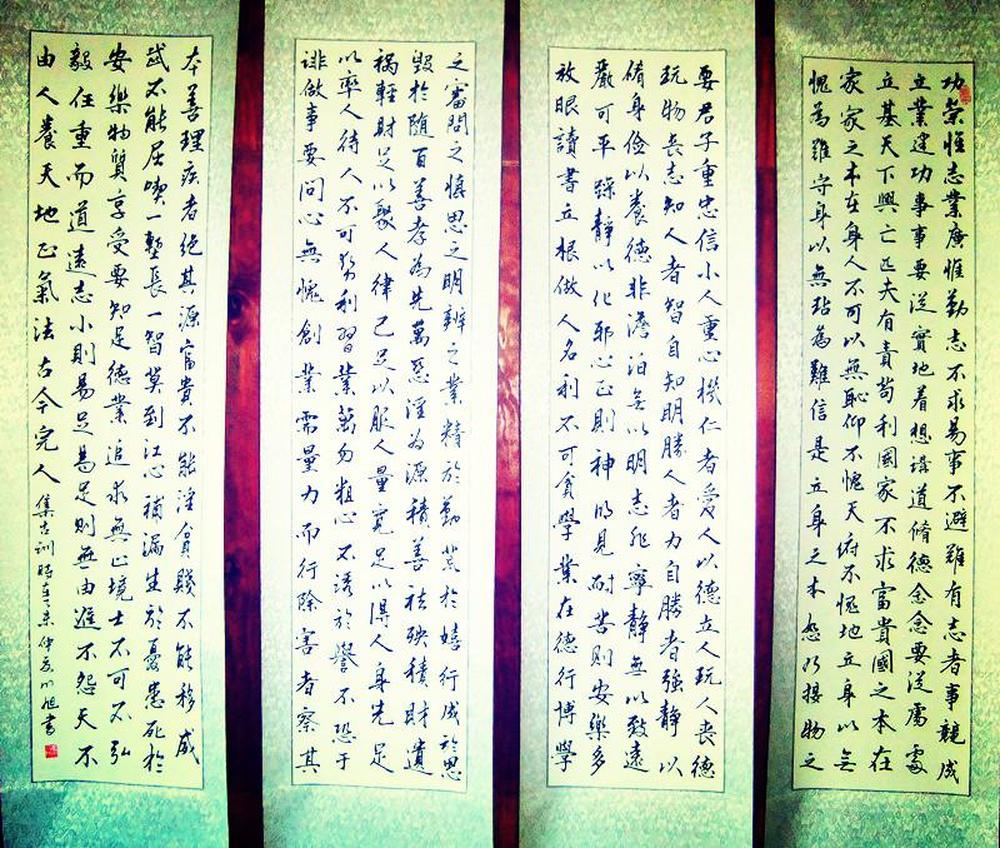 功崇惟志業廣惟勤志不求易事不避難有志者事競成
立業建功事事要從實地着想講道脩德念念要從處
立基天下興亡匹夫有責苟利國家不求富貴國之本在
家家之本在身人不可以無恥仰不愧天俯不愧地立身以無
愧為難守身以無玷為難信是立身之本恕乃接物之
要君子重忠信小人重心機仁者愛人以德立人玩人喪德
玩物喪志知人者智自知明勝人者力自勝者強靜以
脩身儉以養德非澹泊無以明志非寧靜無以致遠
嚴可平躁靜以化邪心正則神明見耐苦則安樂多
放眼讀書立根做人名利不可貪學業在德行博學
之審問之慎思之明辨之業精於勤荒於嬉行成於思
毀於随百善孝為先萬惡淫為源積善祛殃積財遺
禍輕財足以聚人律己足以服人量寬足以得人身先足
以率人待人不可勢利習業萬勿粗心不誘於譽不恐于
誹做事要問心無愧創業需量力而行除害者察其
本善理疾者絕其源富貴不能淫貧賤不能移威
武不能屈喫一塹長一智莫到江心補漏生於憂患死於
安樂物質享受要知足德業追求無止境士不可不弘
毅任重而道遠志小則易足易足則無由進不怨天不
由人養天地正氣法古今完人集古訓時在未仲夏旭書